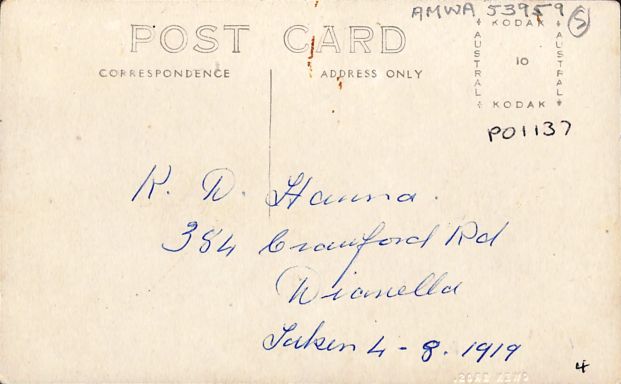 AMWA 53959 S
POST CARD
CORRESPONDENCE
ADDRESS ONLY
KODAK
AUSTRAL
10
AUSTRAL
KODAK
PO1137
K. D. Hanna.
384 Crawford Rd
Dianella
Taken 4 - 8. 1919
4